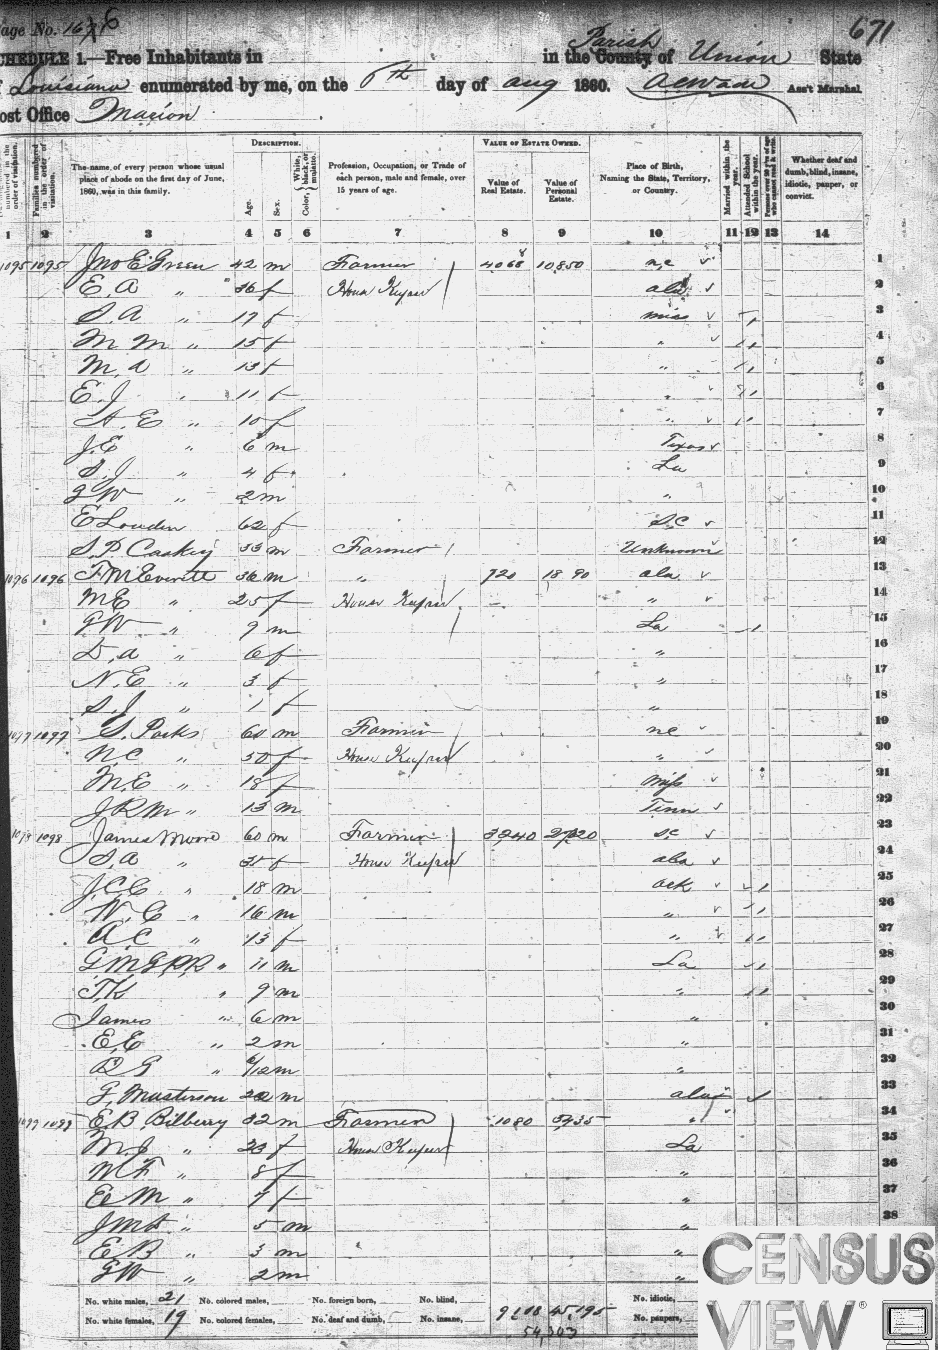 Page No. 167 6
671
SCHEDULE 1.—Free Inhabitants in in the County Parish of Union State
of Louisiana enumerated by me, on the 6th day of aug 1860. Ass't Marshal.
Post Office Marion
DESCRIPTION. VALUE OF ESTATE OWNED.
numbered in the order of visitation.
Families numbered in the order of visitation.
The name of every person whose usual place of abode on the first day of June, 1860, was in this family.
Age.
Sex.
Color, White, black, or mulatto.
Profession, Occupation, or Trade of each person, male and female, over 15 years of age.
Value of Real Estate.
Value of Personal Estate.
Place of Birth, Naming the State, Territory, or Country.
Married within the year.
Attended School within the year.
Persons over 20 y'rs of age who cannot read & write.
Whether deaf and dumb, blind, insane, idiotic, pauper, or convict.
1 2 3 4 5 6 7 8 9 10 11 12 13 14
1095 1095 Jno E Green 42 m Farmer 4068 10850 n,c 1
E, A " 36 f House Keeper ala 2
S. A " 17 f miss 3
M M " 15 f " 4
M, A " 13 f " 5
E. J " 11 f " 6
A E " 10 f " 7
J. E " 6 m Texas 8
S. J " 4 f La 9
G W " 2 m " 10
E Louden 62 f S,C 11
S. P Caskey 33 m Farmer Unknown 12
1096 1096 F M Everett 36 m " 720 1890 ala 13
M E " 25 f House Keeper " 14
G W " 9 m La 15
D, A " 6 f " 16
N. E " 3 f " 17
S. J " 1 f " 18
1097 1097 S. Parks 60 m Farmer nc 19
N C " 50 f House Keeper " 20
M. E " 18 f Miss 21
J R M " 13 m Tenn 22
1098 1098 James Moore 60 m Farmer 3240 2720 sc 23
S, A " 35 f House Keeper ala 24
J. C. C " 18 m ark 25
N. C " 16 m " 26
A C " 13 f " 27
" 11 m La 28
T. K " 9 m " 29
James " 6 m " 30
E, E " 2 m " 31
" 6/12 m " 32
G, Masterson 22 m ala 33
1099 1099 E. B Bilberry 32 m Farmer 1080 5435 " 34
M. J " 23 f House Keeper La 35
M F " 8 f " 36
E M " 7 f " 37
J M S " 5 m " 38
E B " 3 m "
G W " 2 m "
No. white males, 21 No. colored males, No. foreign born, No. blind, No. idiotic,
No. white females, 19 No. colored females, No. deaf and dumb, No. insane, 9,108 45,195 No. paupers,
54,303
CENSUS
VIEW®